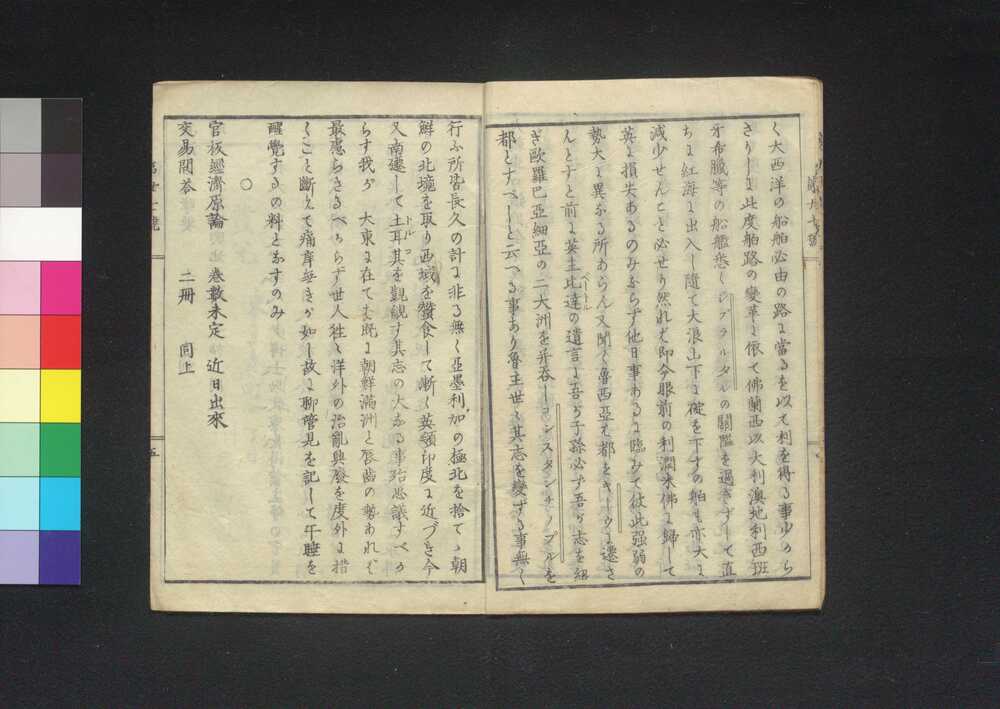 く大西洋の船舶必由の路に當るを以て利を得る事少から
さりしに此度舶路の變革に依て佛蘭西以大利澳地利西班
牙希臘等の船艦悉くジブラルタルの關隘を過きずして直
ちに紅海に出入し隨て大浪山下に碇を下すの舶も亦大に
減少せんこと必せり然れば即今眼前の利潤米佛に歸して
英に損失あるのみならず他日事あるに臨みて彼此强弱の
勢大に異なる所あらん又聞く魯西亞も都をキーウに遷さ
んとすと前に英主比達の遺言に吾が子孫必ず吾が志を紹
ぎ歐羅巴亞細亞の二大洲を并吞しコンスタンチノプルを
都とすべしと云へる事あり魯主世々其志を變ずる事無く
行ふ所皆長久の計に非る無く亞墨利加の極北を捨て、朝
鮮の北境を取り西域を蠶食して漸く英領印度に近づき今
又南邊して土耳其を覬覦す其志の大なる事殆思議すべか
らす我が 大東に在ても既に朝鮮滿洲と唇齒の勢あれば
最慮らさるべからず世人徃々洋外の治亂興廢を度外に措
くこと斷えて痛痒無きが如し故に聊管見を記して午睡を
醒覺するの料となすのみ
○
官板經濟原論 巻數未定 近日出來
交易問答 二冊 同上